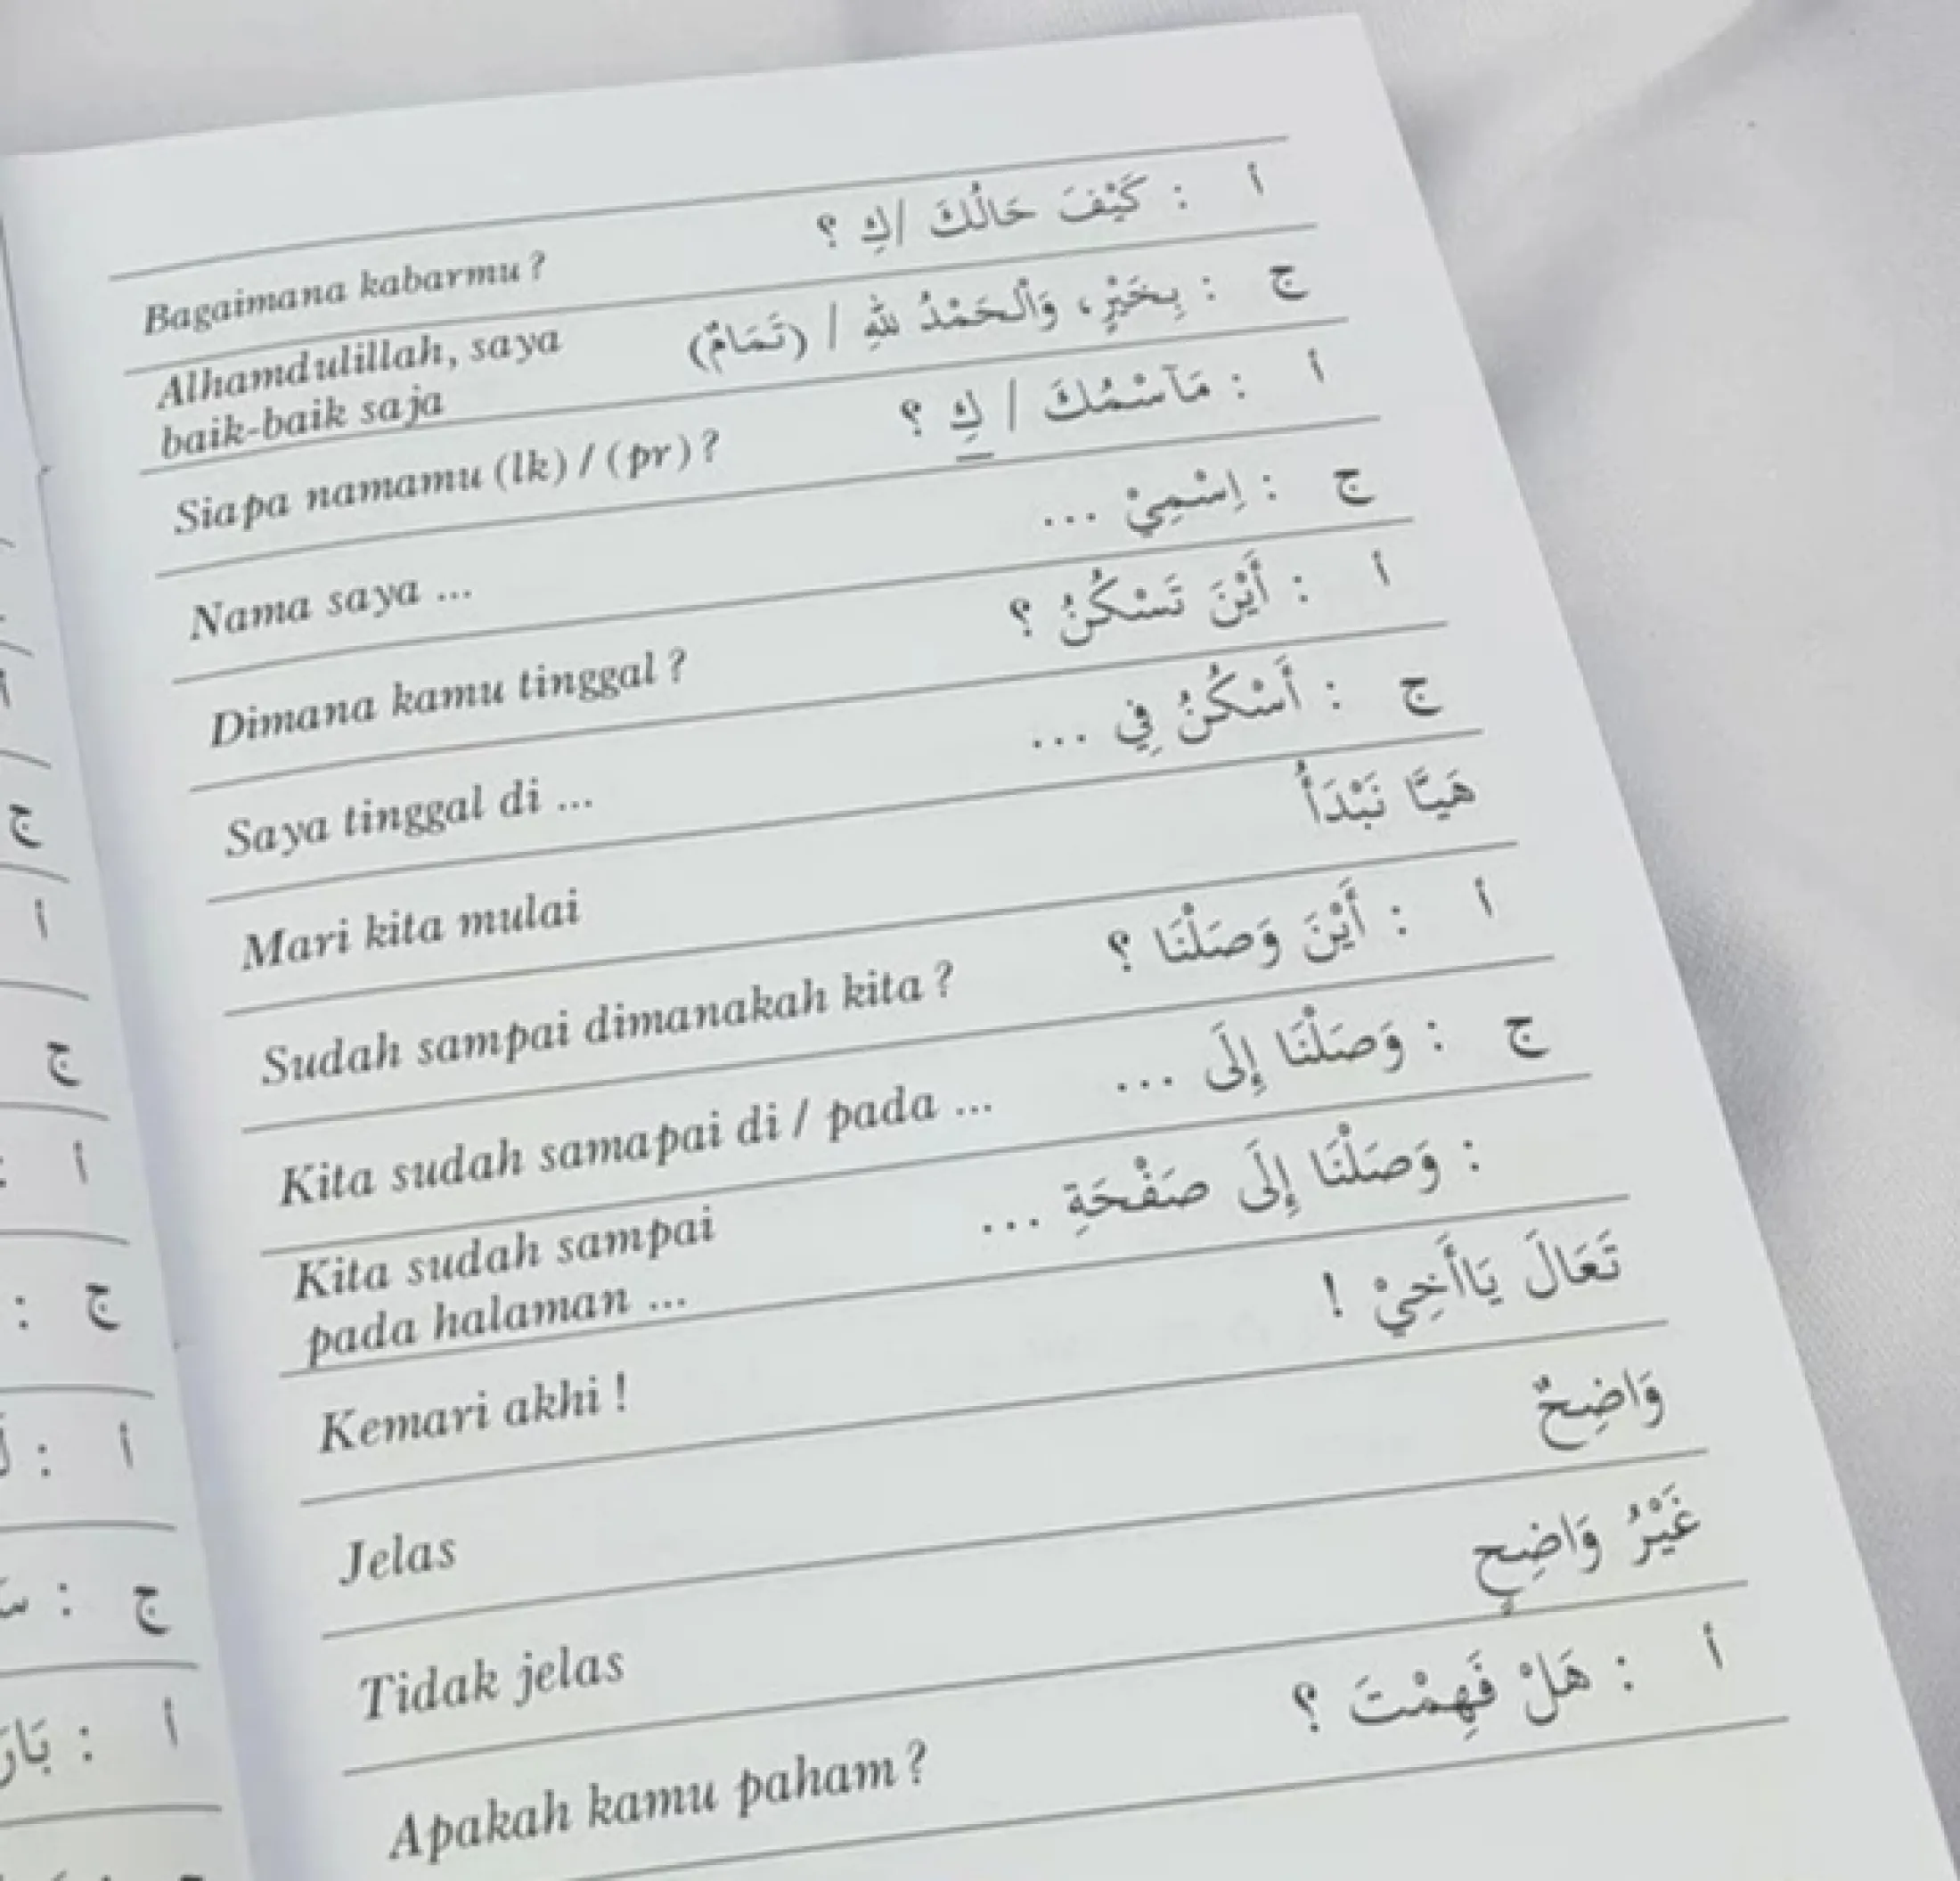 Bagaimana kabarmu ?
أ : كَيْفَ حَالُكَ /كِ ؟
Alhamdulillah, saya
baik-baik saja
ج : بِخَيْرٍ، وَالْحَمْدُ لِلَّهِ / (تَمَامٌ)
Siapa namamu (lk) / (pr) ?
أ : مَآسْمُكَ / كِ ؟
Nama saya ...
ج : اِسْمِيْ ...
Dimana kamu tinggal ?
أ : أَيْنَ تَسْكُنُ ؟
Saya tinggal di ...
ج : أَسْكُنُ فِي ...
Mari kita mulai
هَيَّا نَبْدَأُ
Sudah sampai dimanakah kita ?
أ : أَيْنَ وَصَلْنَا ؟
Kita sudah samapai di / pada ...
ج : وَصَلْنَا إِلَى ...
Kita sudah sampai
pada halaman ...
: وَصَلْنَا إِلَى صَفْحَةِ ...
Kemari akhi !
تَعَالَ يَاأَخِيْ !
Jelas
وَاضِحٌ
Tidak jelas
غَيْرُ وَاضِحٍ
Apakah kamu paham ?
أ : هَلْ فَهِمْتَ ؟